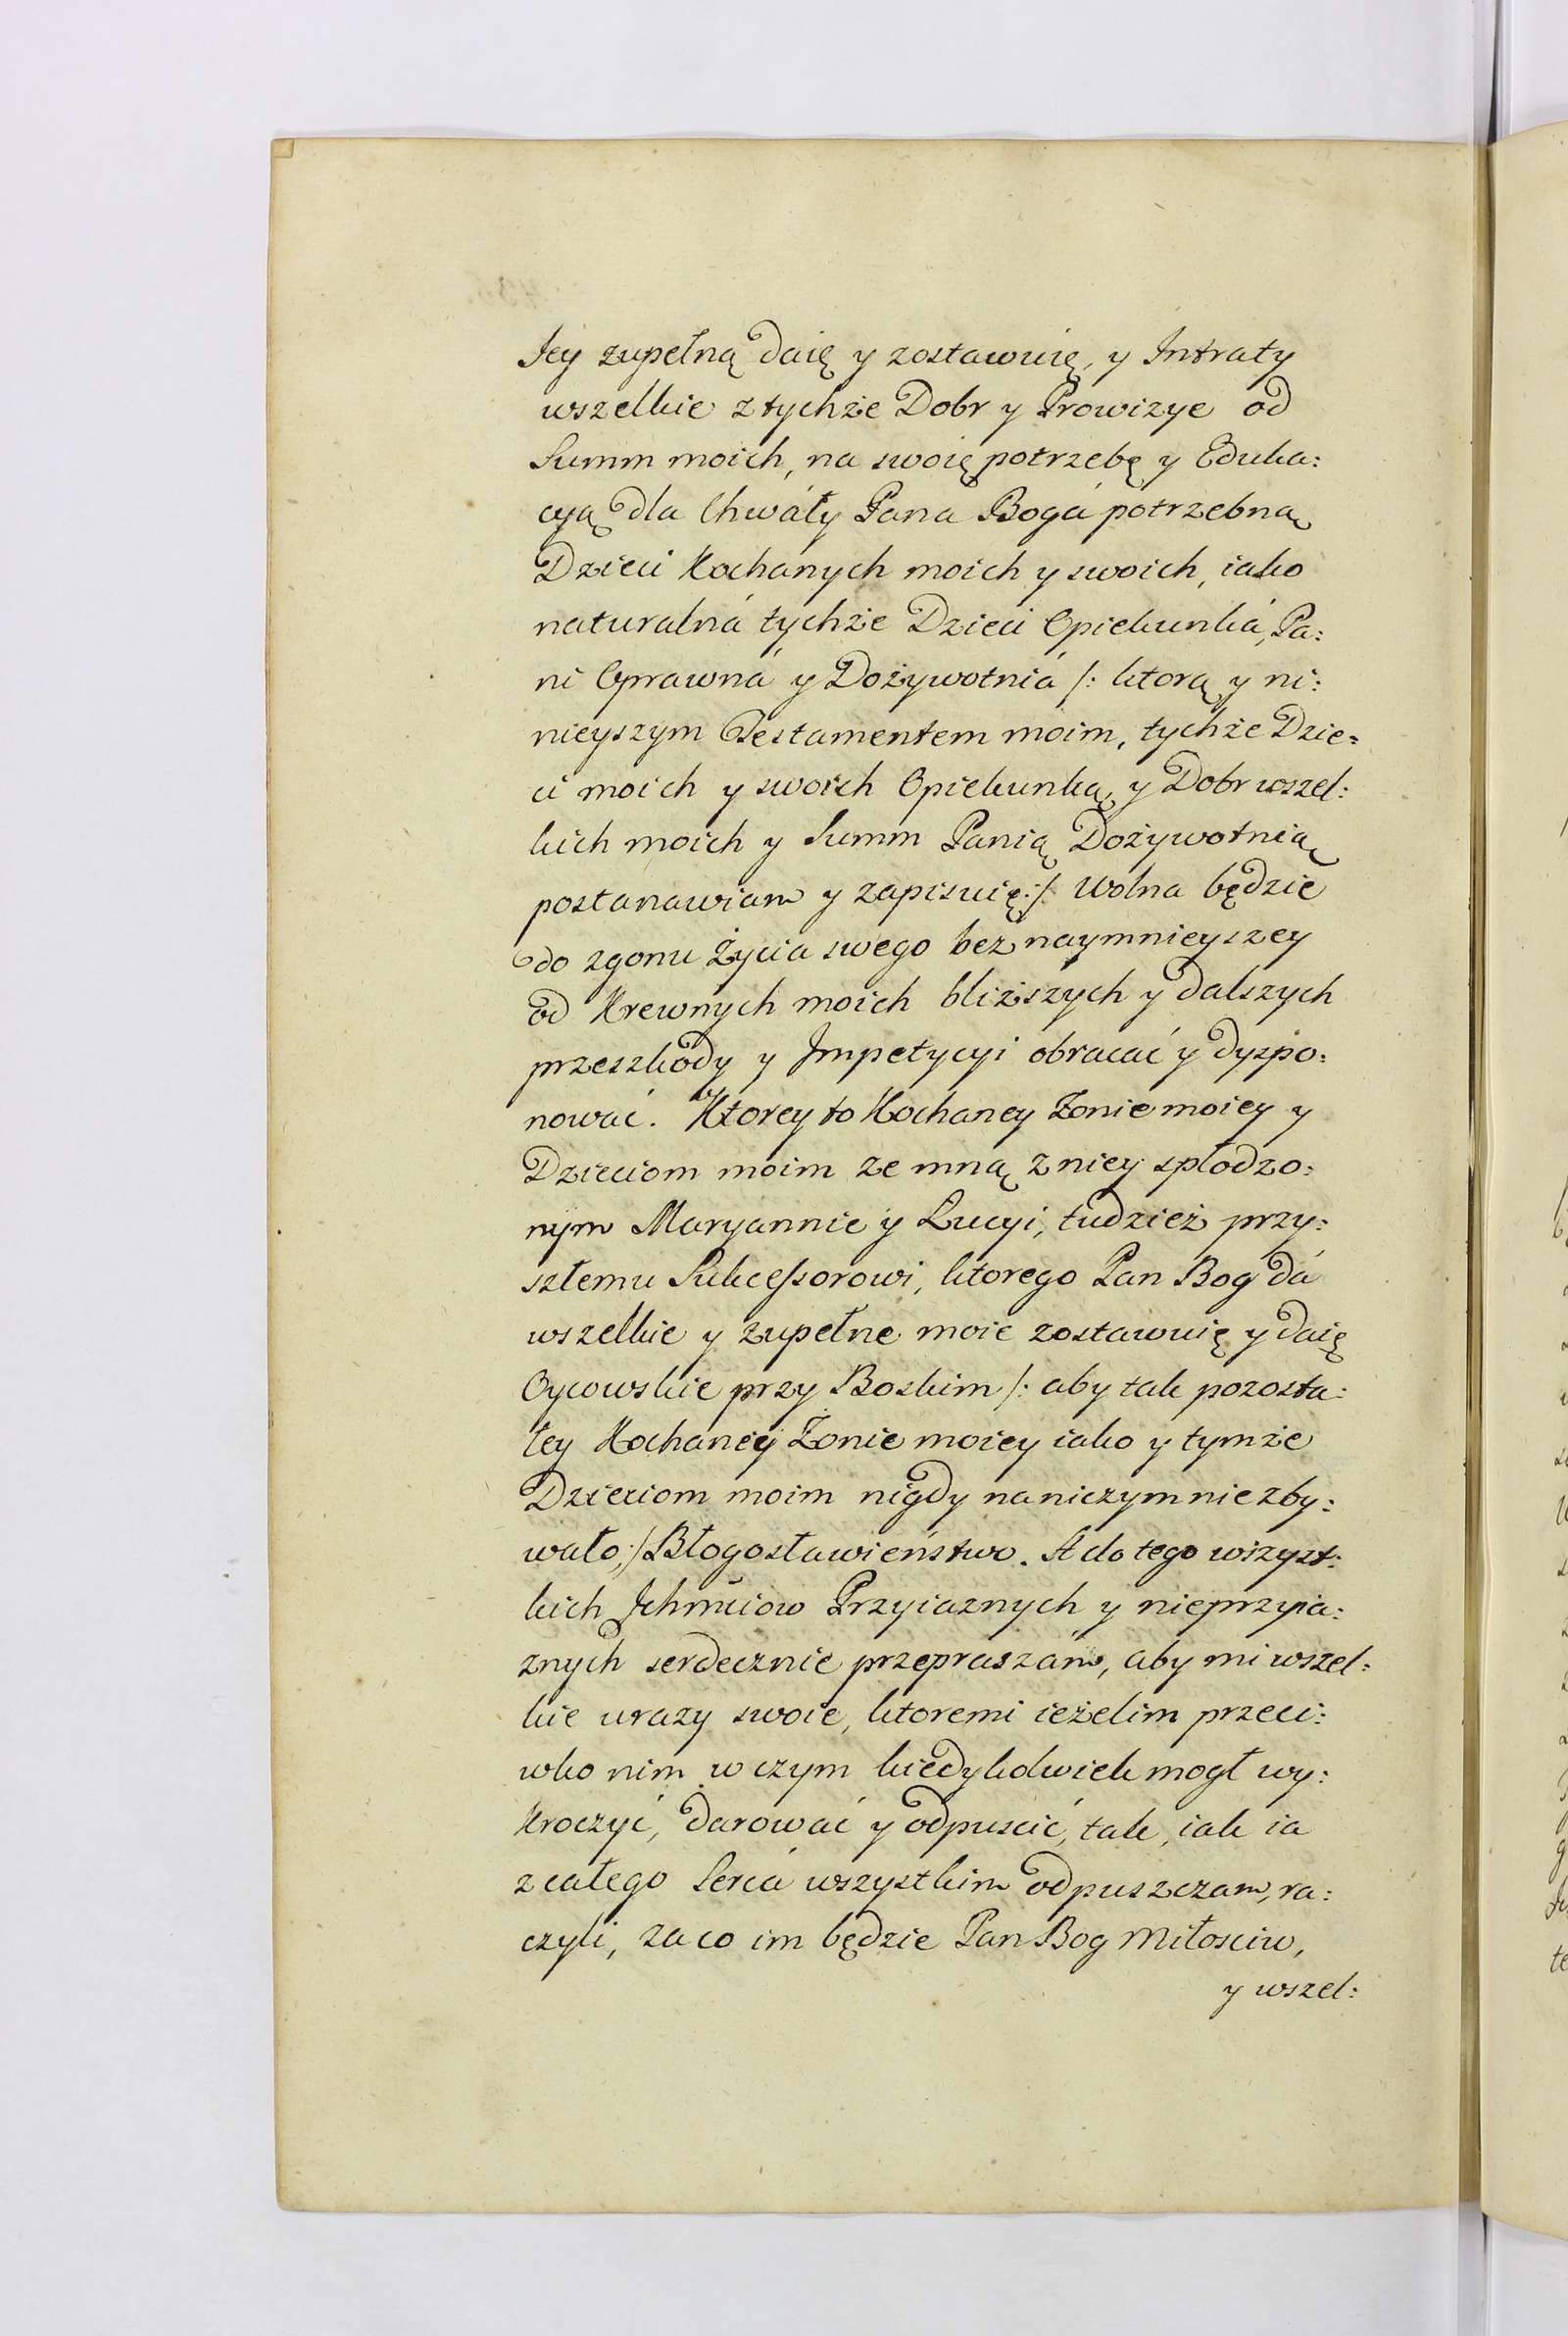 Jey zupełną daię y zostawuię, y Intraty
wszelkie z tychże Dobr y Prowizye od
Summ moich, na swoię potrzebę y Eduka:
cyą dla Chwáły Pana Bogá potrzebną
Dzieci Kochanych moich y swoich, iako
naturalná tychże Dzieci Opiekunká, Pa:
ni Oprawná y Dożywotniá /: ktorą y ni:
nieyszym Testamentem moim, tychże Dzie=
ci moich y swoich Opiekunką, y Dobr wszel:
kich moich y Summ Panią Dożywotnią
postanawiam y zapisuię :/ Wolna będzie
do zgonu Życia swego bez naymnieyszey
od Krewnych moich bliższych y dalszych
przeszkody y Impetycyi obracać y dyspo:
nować. Ktorey to Kochaney Żonie moiey y
Dzieciom moim ze mną z niey spłodzo:
nym Maryannie y Lucyi, tudzież przy:
szłemu Sukcessorowi, ktorego Pan Bog dá
wszelkie y zupełne moie zostawuię y daię
Oycowskie przy Boskim /: aby tak pozosta:
łey Kochaney Żonie moiey iako y tymże
Dzieciom moim nigdy na niczym nie zby:
wało, :/ Błogosławieństwo. A do tego wszyst:
kich Jchmciow Przyiaznych y nieprzyia:
znych serdecznie przepraszám, aby mi wszel=
kie urazy swoie, ktoremi ieżelim przeci:
wko nim w czym kiedykolwiek mogł wy:
kroczyć, darować y odpuscić, tak, iak ia
z całego Sercá wszystkim odpuszczam, ra:
czyli, za co im będzie Pan Bog Miłosciw,
y wszel: